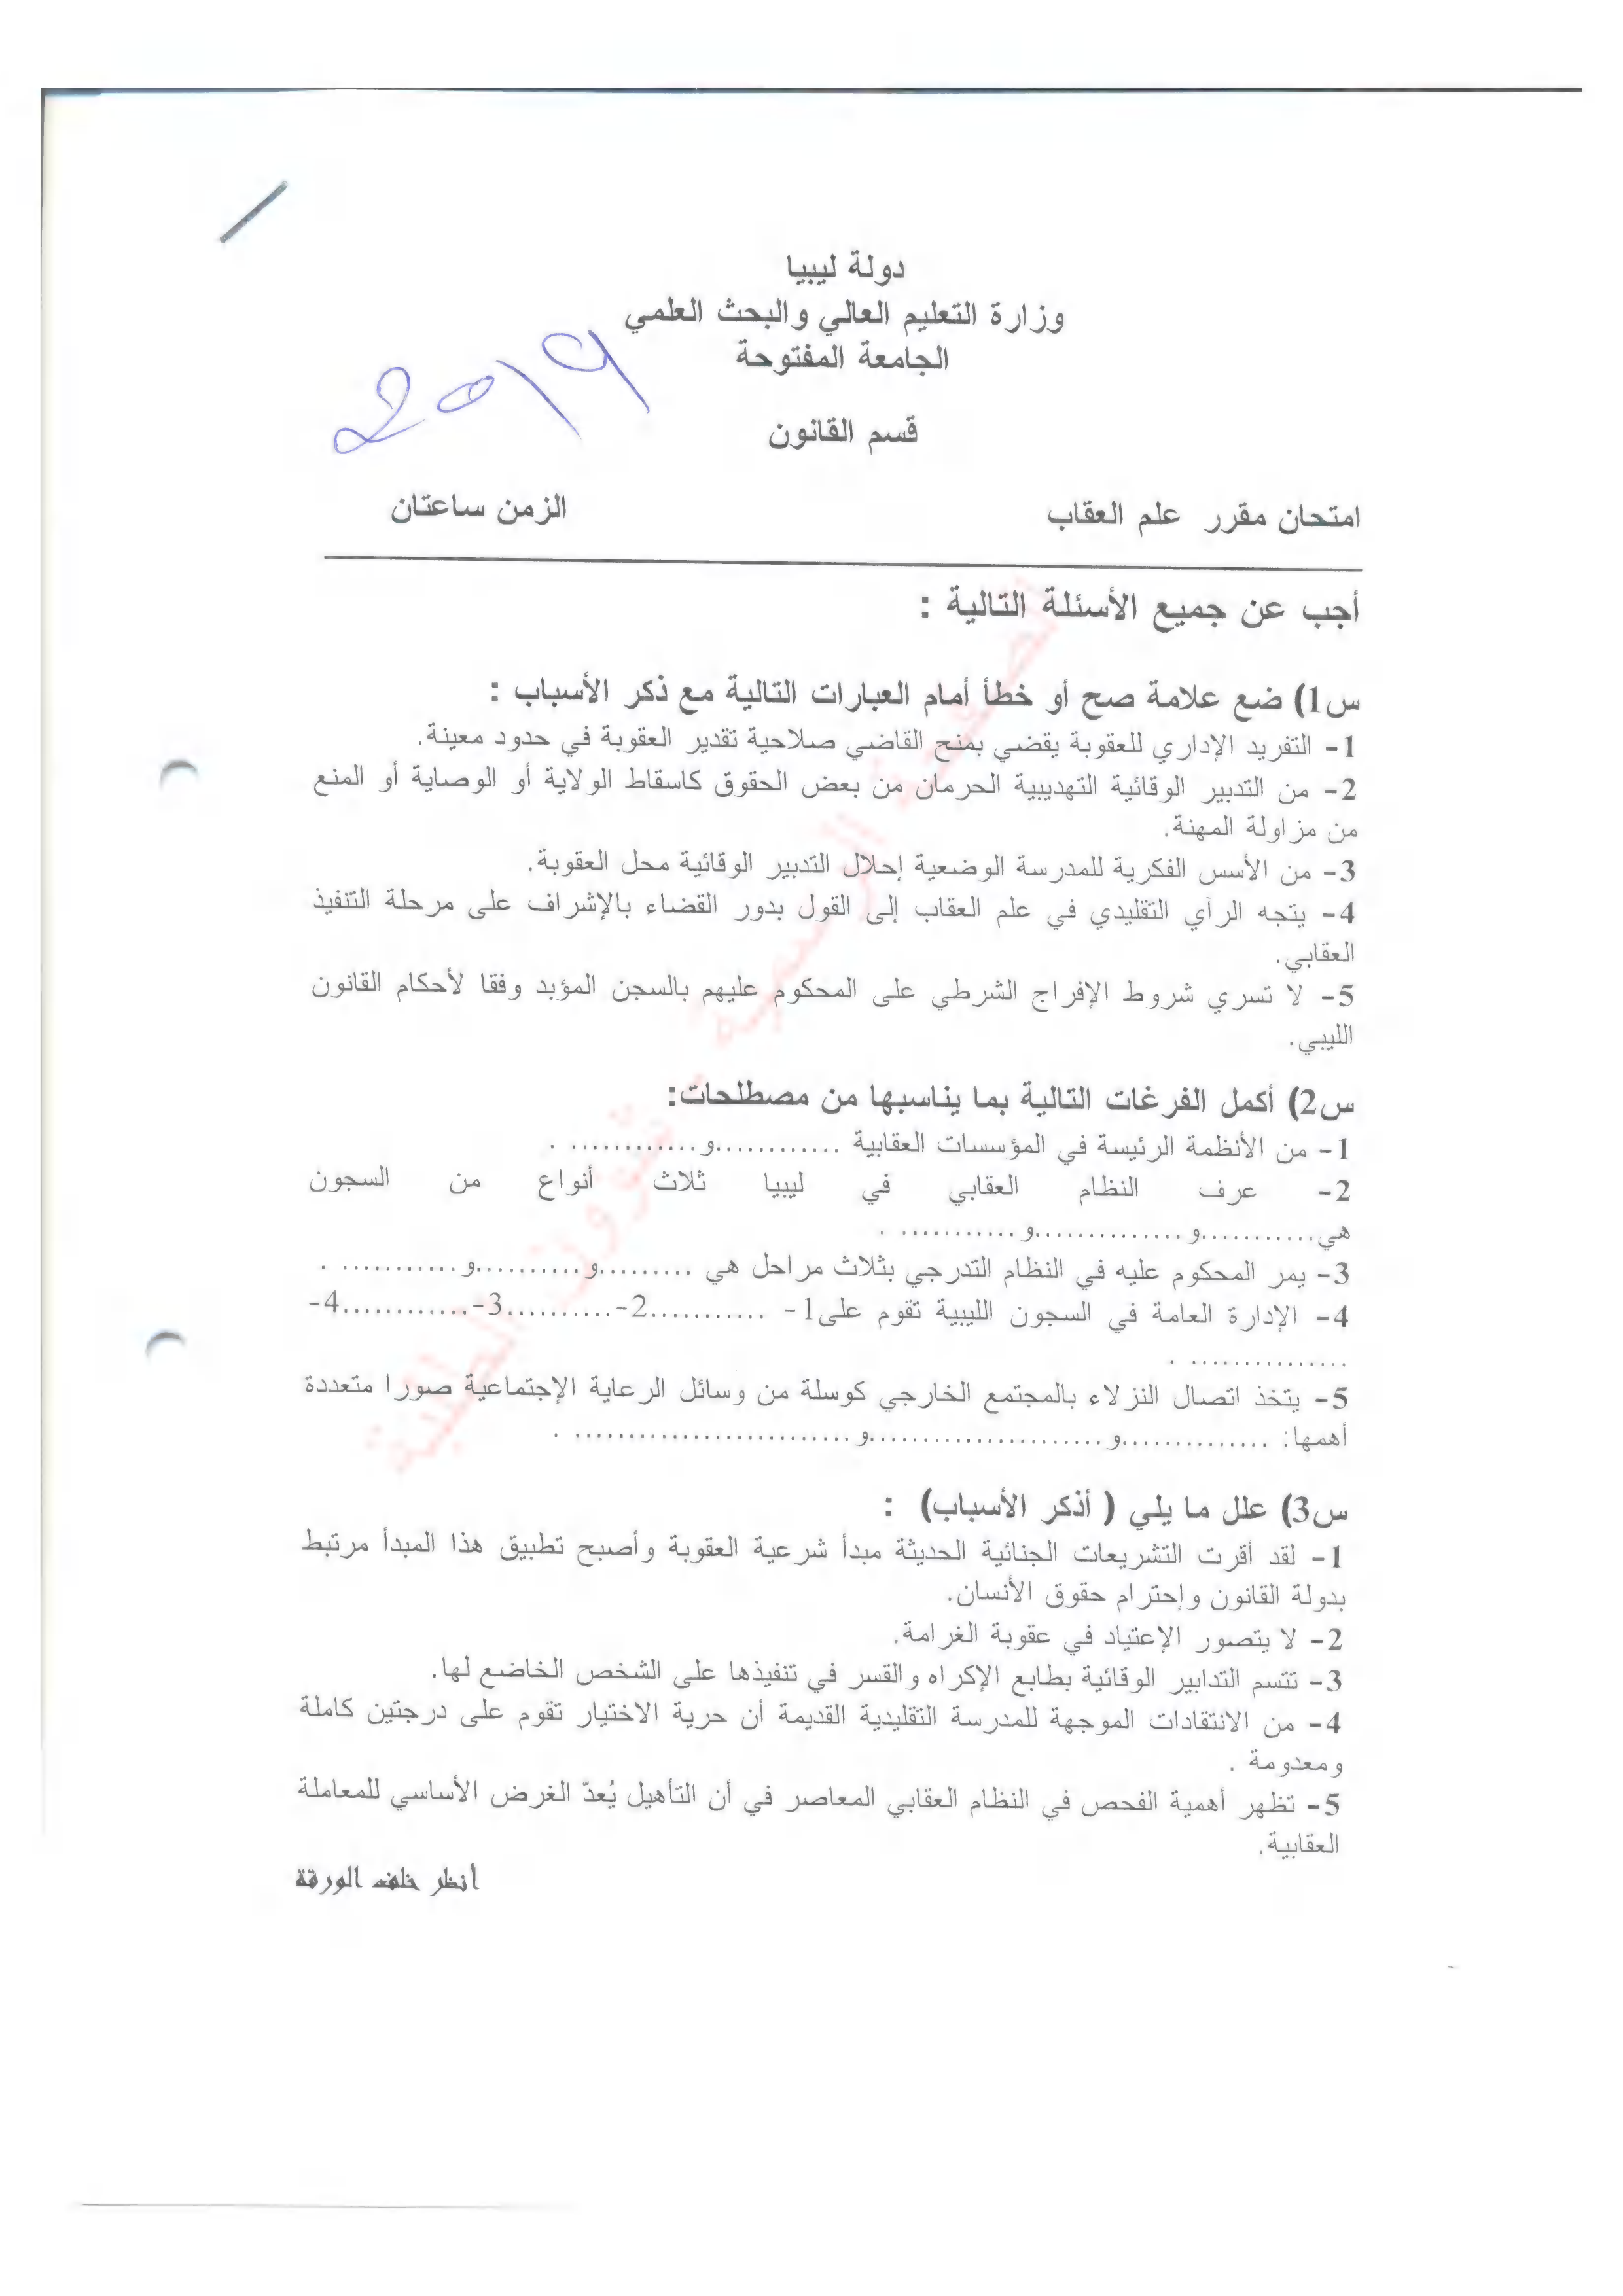 دولة ليبيا
وزارة التعليم العالي والبحث العلمي
الجامعة المفتوحة
2019
قسم القانون
امتحان مقرر علم العقاب الزمن ساعتان
أجب عن جميع الأسئلة التالية :
س1) ضع علامة صح أو خطأ أمام العبارات التالية مع ذكر الأسباب :
1- التفريد الإداري للعقوبة يقضي بمنح القاضي صلاحية تقدير العقوبة في حدود معينة.
2- من التدبير الوقائية التهديبية الحرمان من بعض الحقوق كاسقاط الولاية أو الوصاية أو المنع
من مزاولة المهنة.
3- من الأسس الفكرية للمدرسة الوضعية إحلال التدبير الوقائية محل العقوبة.
4- يتجه الرآي التقليدي في علم العقاب إلى القول بدور القضاء بالإشراف على مرحلة التنفيذ
العقابي.
5- لا تسري شروط الإفراج الشرطي على المحكوم عليهم بالسجن المؤبد وفقا لأحكام القانون
الليبي.
س2) أكمل الفرغات التالية بما يناسبها من مصطلحات:
1- من الأنظمة الرئيسة في المؤسسات العقابية ............و............ .
2- عرف النظام العقابي في ليبيا ثلاث أنواع من السجون
هي...........و..............و........... .
3- يمر المحكوم عليه في النظام التدرجي بثلاث مراحل هي .........و..........و........... .
4- الإدارة العامة في السجون الليبية تقوم على1- ...........2-..........3-............4-
............... .
5- يتخذ اتصال النزلاء بالمجتمع الخارجي كوسلة من وسائل الرعاية الإجتماعية صورا متعددة
أهمها: ..............و......................و.......................... .
س3) علل ما يلي ( أذكر الأسباب) :
1- لقد أقرت التشريعات الجنائية الحديثة مبدأ شرعية العقوبة وأصبح تطبيق هذا المبدأ مرتبط
بدولة القانون وإحترام حقوق الأنسان.
2- لا يتصور الإعتياد في عقوبة الغرامة.
3- تتسم التدابير الوقائية بطابع الإكراه والقسر في تنفيذها على الشخص الخاضع لها.
4- من الانتقادات الموجهة للمدرسة التقليدية القديمة أن حرية الاختيار تقوم على درجتين كاملة
ومعدومة .
5- تظهر أهمية الفحص في النظام العقابي المعاصر في أن التأهيل يُعدّ الغرض الأساسي للمعاملة
العقابية.
أنظر خلف الورقة